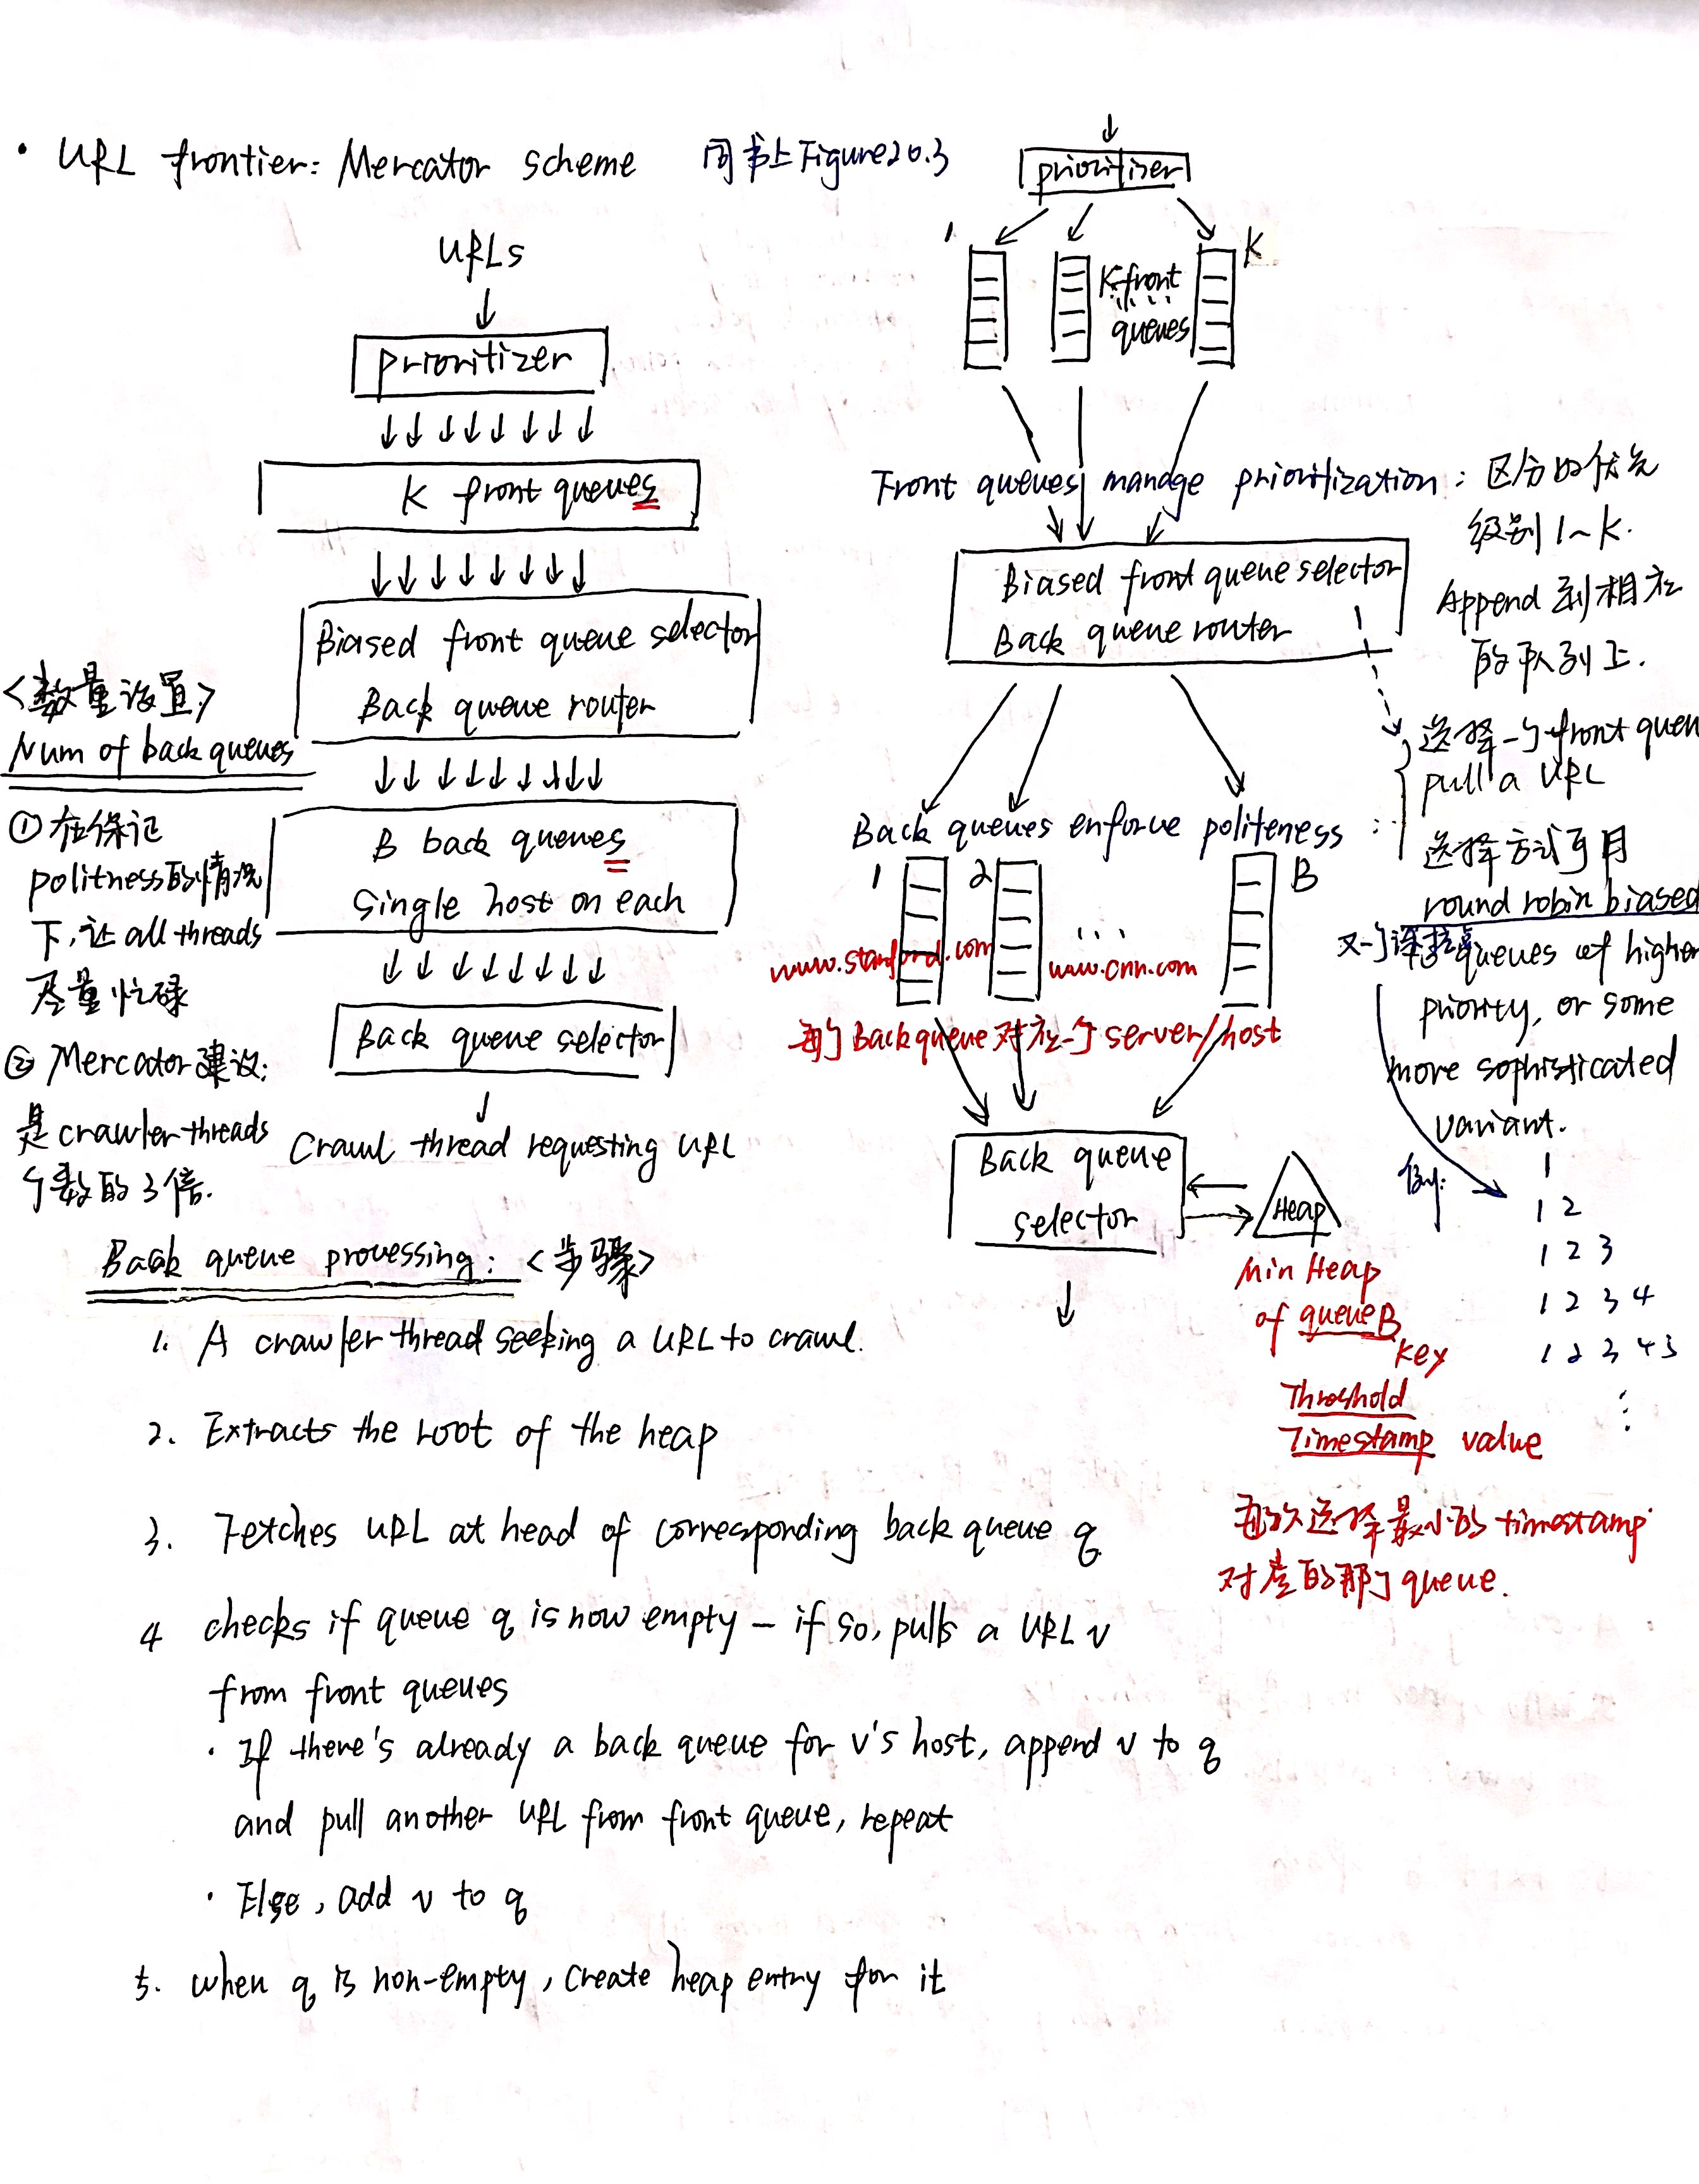 • URL frontier: Mercator scheme 同书上Figure20.3
URLs
↓
Prioritizer
K front queues
Biased front queue selector
Back queue router
B back queues
Single host on each
Back queue selector
Crawl thread requesting URL
<数量设置>
Num of back queues
① 在保证
politness的情况
下,让all threads
尽量忙碌
② Mercator建议:
是crawler threads
个数的3倍.
prioritizer
1
K
K front
queues
Front queues manage prioritization: 区分的优先
级别1~K.
Append到相应
的队列上.
Biased front queue selector
Back queue router
选择一个front queue
pull a URL
选择方式可用
round robin biased
queues of higher
priority, or some
more sophisticated
variant.
例:
1
1 2
1 2 3
1 2 3 4
1 2 3 4 5
⋮
Back queues enforce politeness:
1 2 ... B
www.stanford.com www.cnn.com
每个Back queue对应一个server/host
Back queue
selector
Heap
Min Heap
of queue B
key
Threshold
Timestamp value
每次选择最小的timestamp
对应的那个queue.
Back queue processing: <步骤>
1. A crawler thread seeking a URL to crawl.
2. Extracts the root of the heap
3. Fetches URL at head of corresponding back queue q
4 checks if queue q is now empty – if so, pulls a URL v
from front queues
· If there's already a back queue for v's host, append v to q
and pull another URL from front queue, repeat
· Else, add v to q
5. when q is non-empty, create heap entry for it